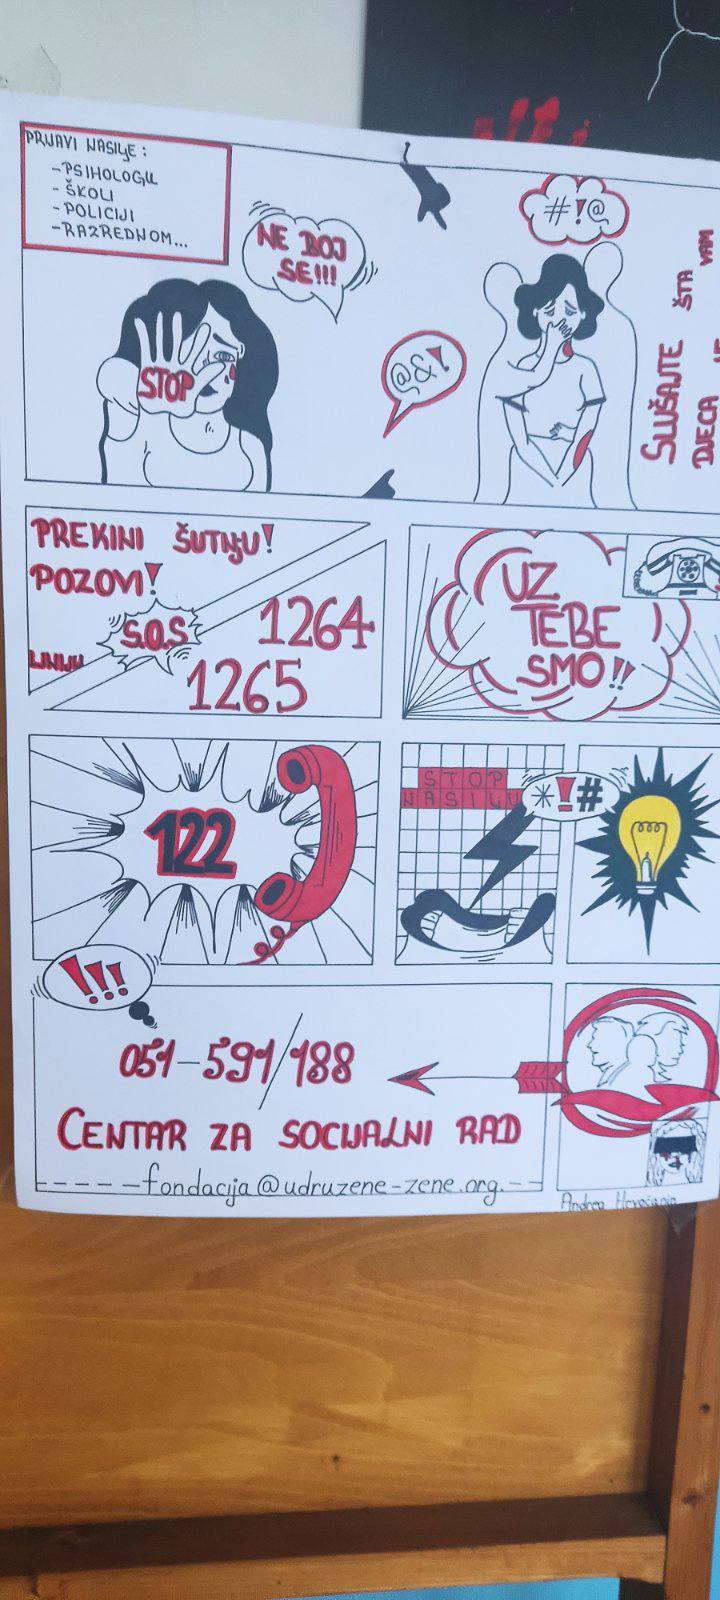 PRIJAVI NASILJE:
-PSIHOLOGU
- ŠKOLI
- POLICIJI
-RAZREDNOM...
NE BOJ
SE!!!
STOP
#!@
@&!
SLUŠAJTE ŠTA VAM
DJECA NE
PREKINI ŠUTNJU!
POZOVI!
S.O.S
LINIJU
1264
1265
UZ
TEBE
SMO!!
122
STOP
NASILJU
*!#
!!!
051-591/188
CENTAR ZA SOCIJALNI RAD
fondacija@udruzene-zene.org.
Andrea